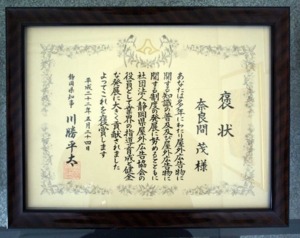 褒状
奈良間 茂 様
あなたは多年にわたり屋外広告物に
関する知識の普及及び屋外広告物に
関する制度の発展に努めるとともに
社団法人静岡県屋外広告協会の
役員として業界の指導育成と健全
な発展に大きく貢献されました
よってこれを褒賞します
平成二十三年五月二十四日
静岡県知事 川勝平太